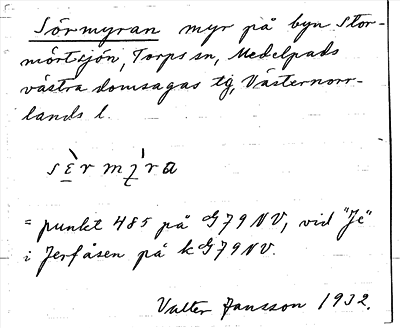 Sörmyran myr på byn Stor-
mörtsjön, Torps sn, Medelpads
västra domsagas tg, Västernorr-
lands l.
= punkt 485 på G79NV, vid "Je"
i Jerfåsen på k G79NV.
Valter Jansson 1932.